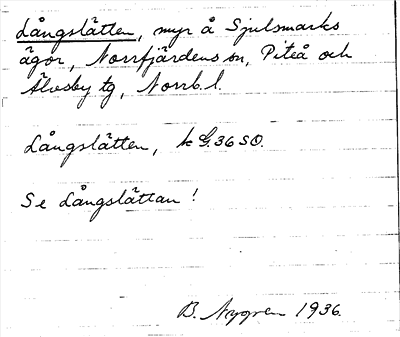 Långslätten, myr å Sjulsmarks
ägor, Norrfjärdens sn, Piteå och
Älvsby tg, Norrb. l.
Långslätten, k G. 36 SO.
Se Långslättan!
B. Nygren 1936.